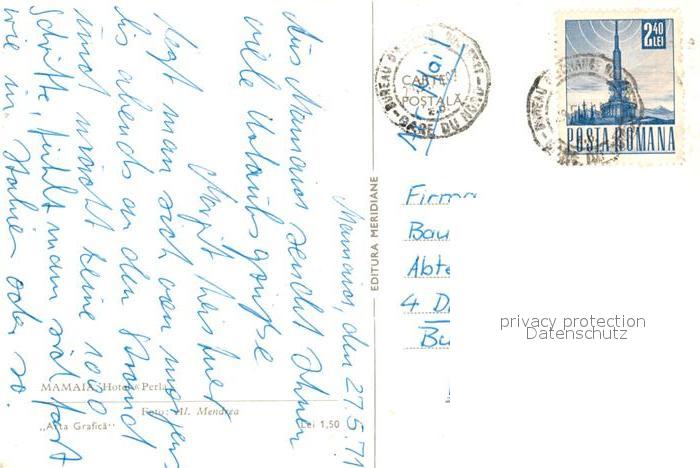 Mamaia, den 27.5.71
Aus Mamaia sendet Ihnen
viele Urlaubsgrüße
Margit
legt man sich von morgens
bis abends an den Strand
und macht keine 100
Schritte, fühlt man sich fast
wie in Italien oder so.
MAMAIA Hotel „Perla
Foto: Al. Mendrea
„Arta Grafică“
Lei 1,50
EDITURA MERIDIANE
CARTE
POŞTALĂ
GARE DU NORD
2,40
LEI
POSTA ROMANA
Firma
Bau
Abte
4 D
privacy protection
Datenschutz